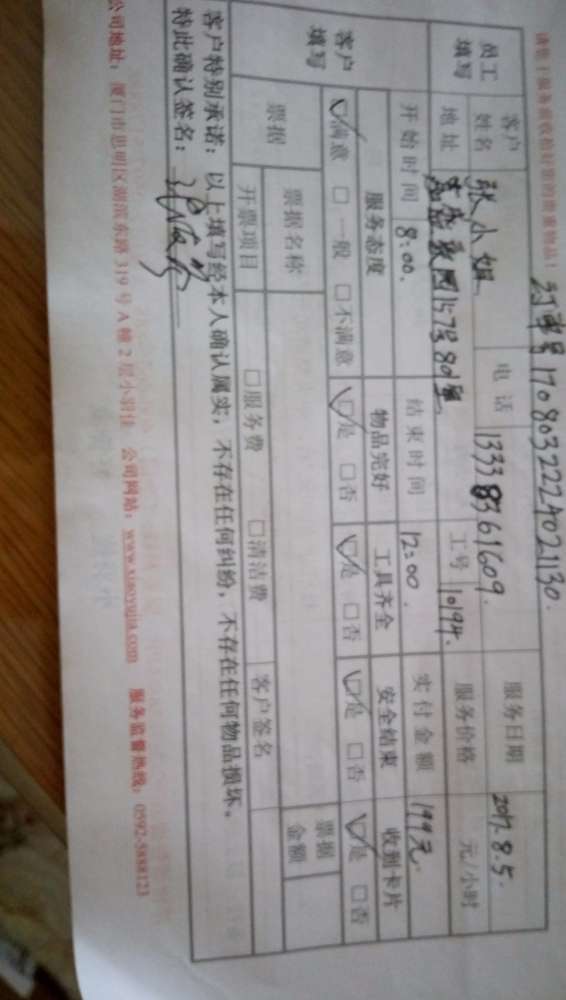 订单号170803222402130.
请您于服务前收拾好您的贵重物品！
员工填写 客户姓名 张小姐 电话 13338361609. 服务日期 2017.8.5.
地址 157号801室. 工号 10194. 服务价格 元/小时
客户填写 开始时间 8:00. 结束时间 12:00. 实付金额 199元.
服务态度 物品完好 工具齐全 安全结束 收到卡片
☑满意 □一般 □不满意 ☑是 □否 ☑是 □否 ☑是 □否 ☑是 □否
票据 票据名称 票据金额
开票项目 □服务费 □清洁费 客户签名
客户特别承诺：以上填写经本人确认属实，不存在任何纠纷，不存在任何物品损坏。
特此确认签名：
公司地址：厦门市思明区湖滨东路319号A幢2层小羽佳 公司网站：www.xiaoyujia.com 服务监督热线：0592-5888123